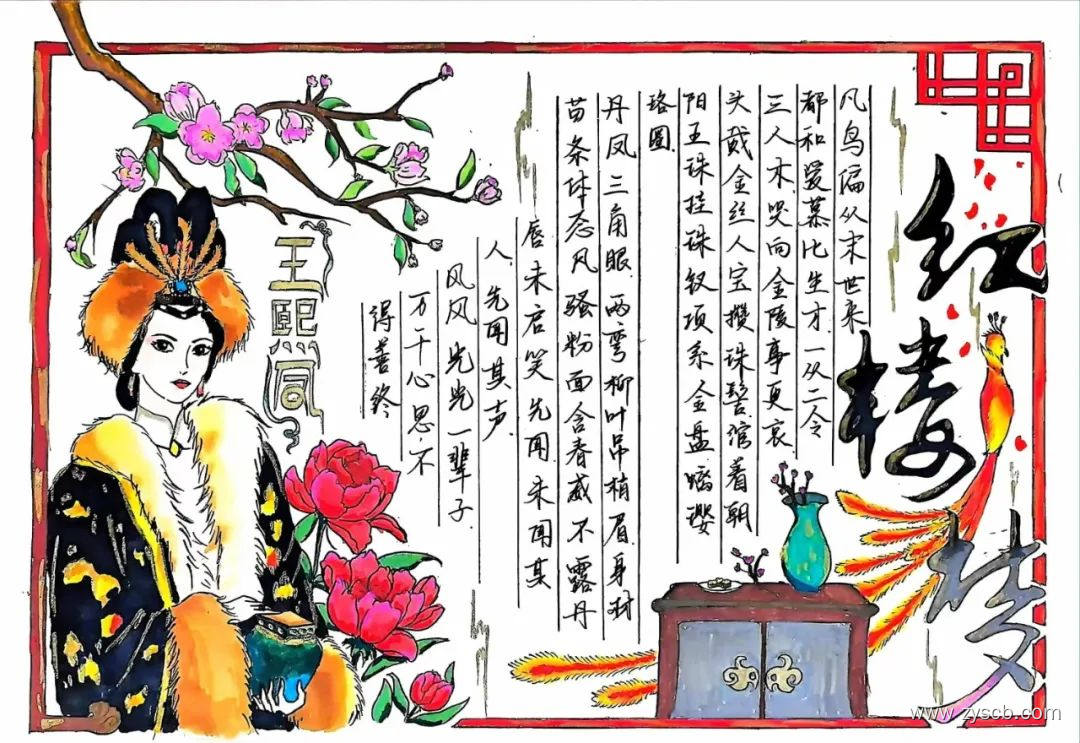 红楼梦
凡鸟偏从末世来
都和爱慕比生才.一从二令
三人木.哭向金陵事更哀
头戴金丝人宝攒珠髻.绾着朝
阳五珠挂珠钗.项系金盘螭璎
珞圈
丹凤三角眼.两弯柳叶吊梢眉.身材
苗条.体态风骚.粉面含春威不露.丹
唇未启笑先闻.未闻其
人.先闻其声.
风风光光一辈子.
万千心思.不
得善终
王熙凤
www.zyscb.com